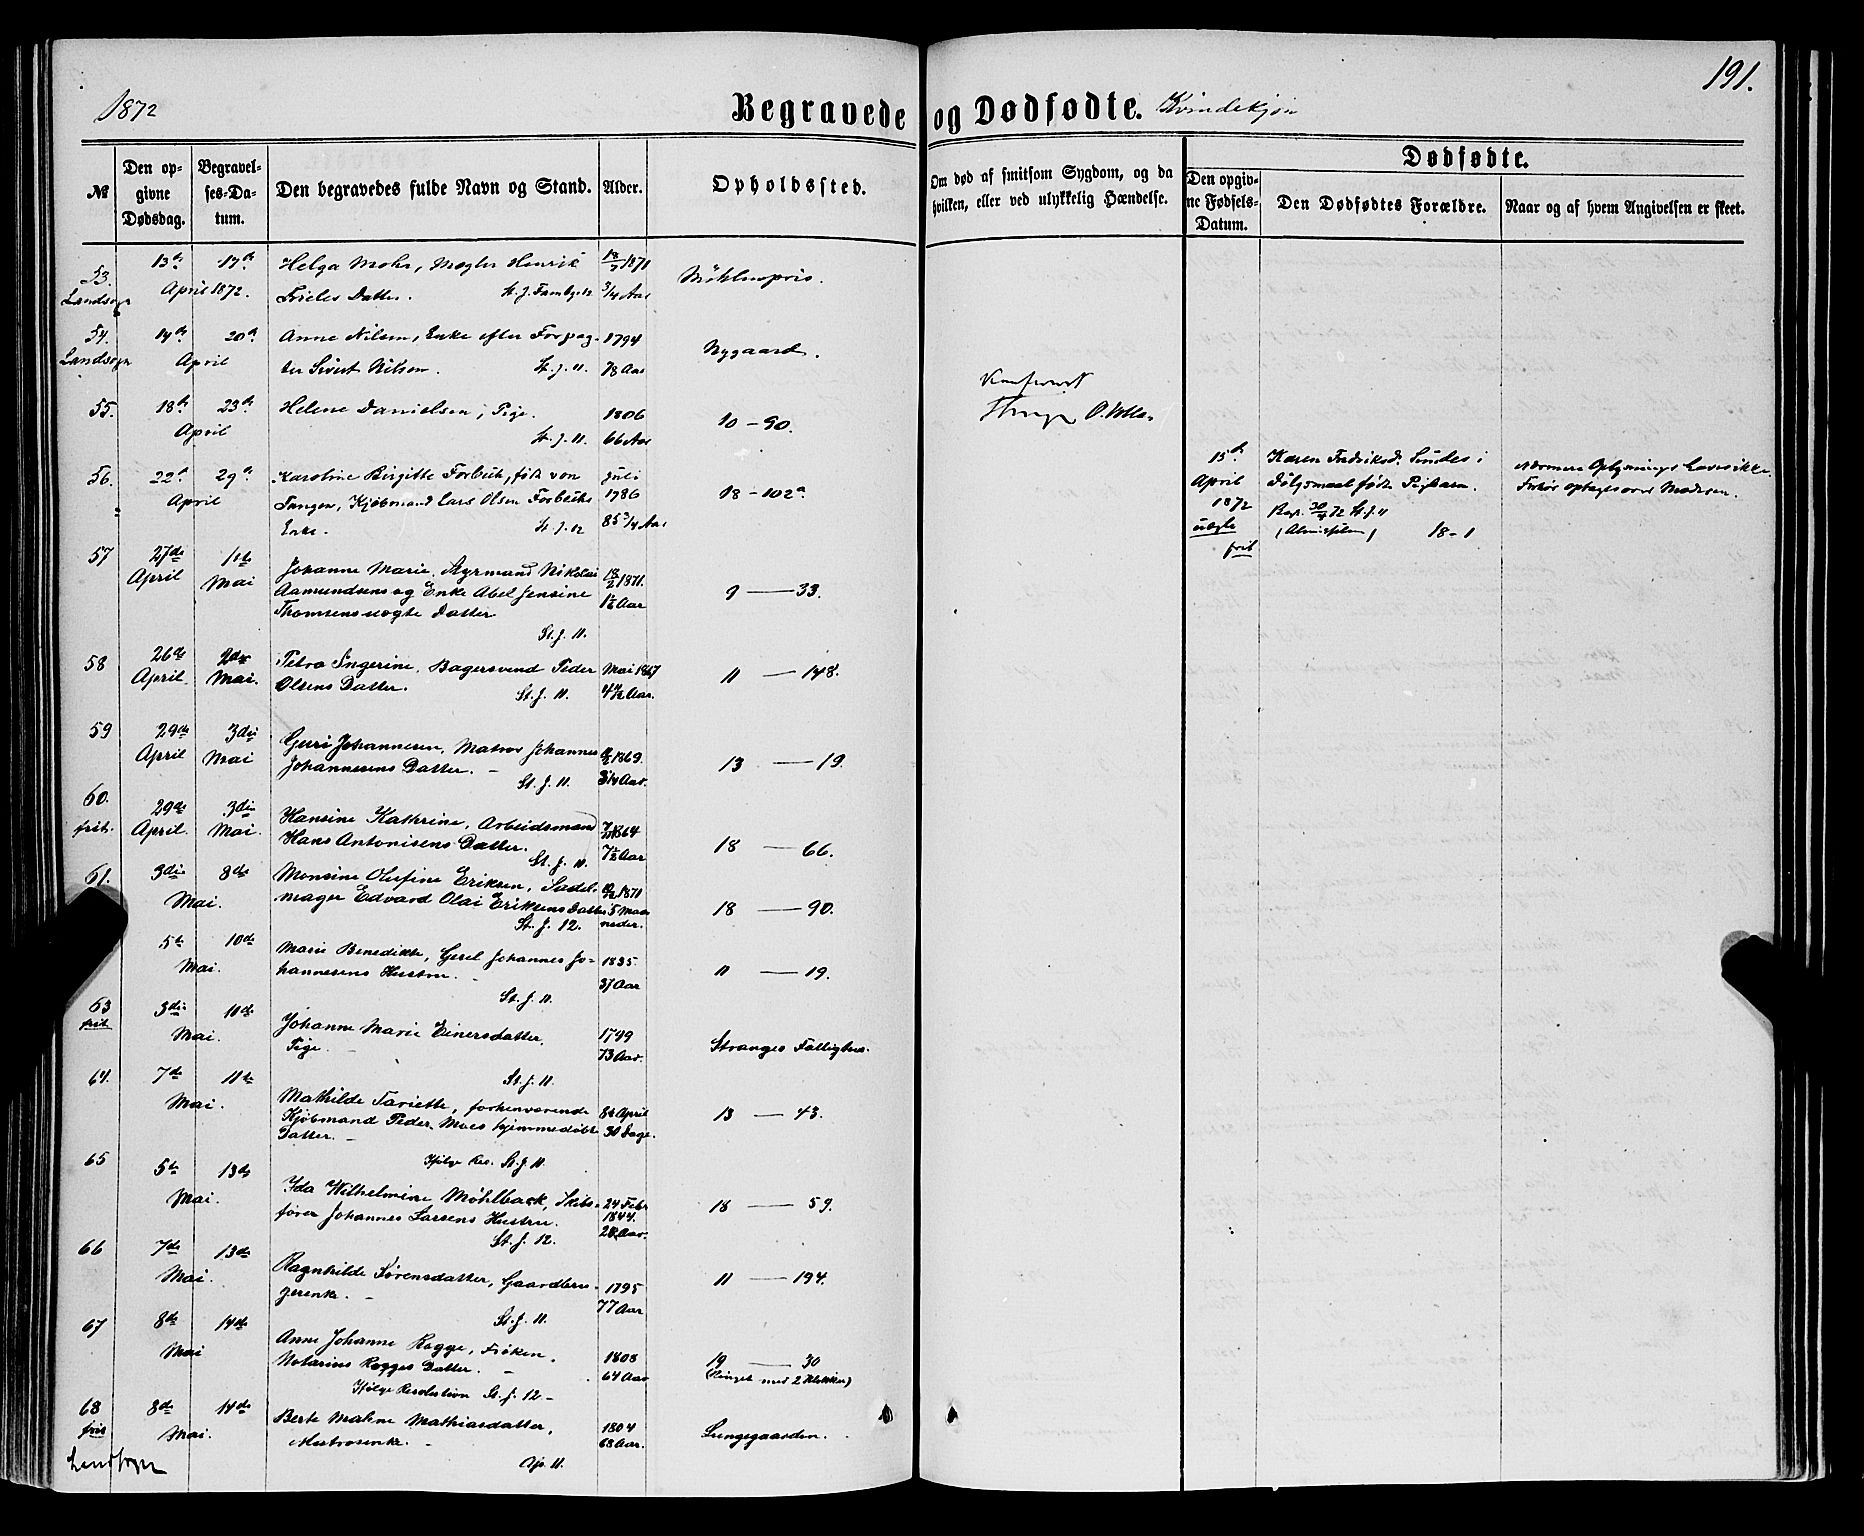 1872
Begravede og Dødfødte. Kvindekjøn
191.
№
Den opgivne Dødsdag.
Begravelses-Datum.
Den begravedes fulde Navn og Stand.
Alder.
Opholdssted.
Om død af smitsom Sygdom, og da hvilken, eller ved ulykkelig Hændelse.
Dødfødte.
Den opgivne Fødsels-Datum.
Den Dødfødtes Forældre.
Naar og af hvem Angivelsen er skeet.
53. 13de 17de Helga Mohr, Mægler Henrik 1871 Møhlenpris.
Landsogn April 1872. Frieles Datter. St. J. 12 3/4 Aar
54. 14de 20de Anne Nilsen, Enke efter Forpag- 1794 Nygaard.
Landsogn April ter Sivert Nilsen. St. J. 11. 78 Aar
55. 18de 23de Helene Danielsen, Pige. 1806 10 - 90.
April St. J. 11. 66 Aar
56. 22de 29de Karoline Birgitte Forbech, født von Juli 18 - 102a
April Tangen, Kjøbmand Lars Olsen Forbechs 1786
Enke. St. J. 12 85 3/4 Aar
57 27de 1ste Johanne Marie, Styrmand Nikolai 18/2 1871. 9 — 33.
April Mai Aamundsens og Enke Abel Jensine 1 1/4 Aar
Thomsens uægte Datter
St. J. 11.
58 26de 2den Petra Ingerine, Bagersvend Peder Mai 1867 11 — 148.
April. Mai. Olsens Datter. St. J. 11. 4 1/2 Aar.
59 29de 3die Guri Johannesen, Matros Johannes 1869. 13 — 19.
April Mai Johannesens Datter. St. J. 11. Aar.
60. 29de 3die Hansine Kathrine, Arbeidsmand 1864 18 — 66.
frit. April. Mai. Hans Antonisens Datter. St. J. 11. 7 1/2 Aar
61. 3die 8de Monsine Olufine Eriksen, Sadel- 1871 18 — 90.
Mai. mager Edvard Olai Eriksens Datter 5 Maaneder.
St. J. 12.
5te 10de Marie Benedikte, Gesel Johannes Jo- 1835 11 — 19.
Mai. hannesens Hustru. 37 Aar
St. J. 11.
63 3die 11de Johanne Marie Einersdatter, 1799 Stranges Fattighus.
frit Mai. Pige. 73 Aar.
St. J. 11.
64. 7de 11te Mathilde Tariette, forhenværende 8de April 13 — 43.
Mai. Kjøbmand Peder Moes hjemmedøbt 30 Dage.
Datter.
Ifølge Res. St. J. 11.
65 5te 13de Ida Wilhelmine Møhlback, Skibs- 24 Febr 18 — 59.
Mai. fører Johannes Larsens Hustru. 1844.
St. J. 12. 28 Aar.
66 7de 13de Ragnhilde Sørensdatter, Gaardbru- 1795 11 — 194.
Mai. gerenke. 77 Aar
St. J. 11.
67 8de 14de Anne Johanne Rogge, Frøken, 1808 19 — 30
Mai Notarius Rogges Datter. 64 Aar (Ringet med 2 Klokker)
Ifølge Resolution St. J. 12
68 8de 14de Berte Maline Mathiasdatter, 1804 Lungegaarden.
frit Mai. Matrosenke. 68 Aar.
Landsogn St. J. 11.
Konfereret
15de Karen Fredriksd. Sundes i nærmere Oplysninger haves ikke.
April Dølgsmaal fødte Pigebarn. Forhør optages over Moderen.
1872 Begr. 30/4 72 St. J. 11
uægte 18 - 1
frit